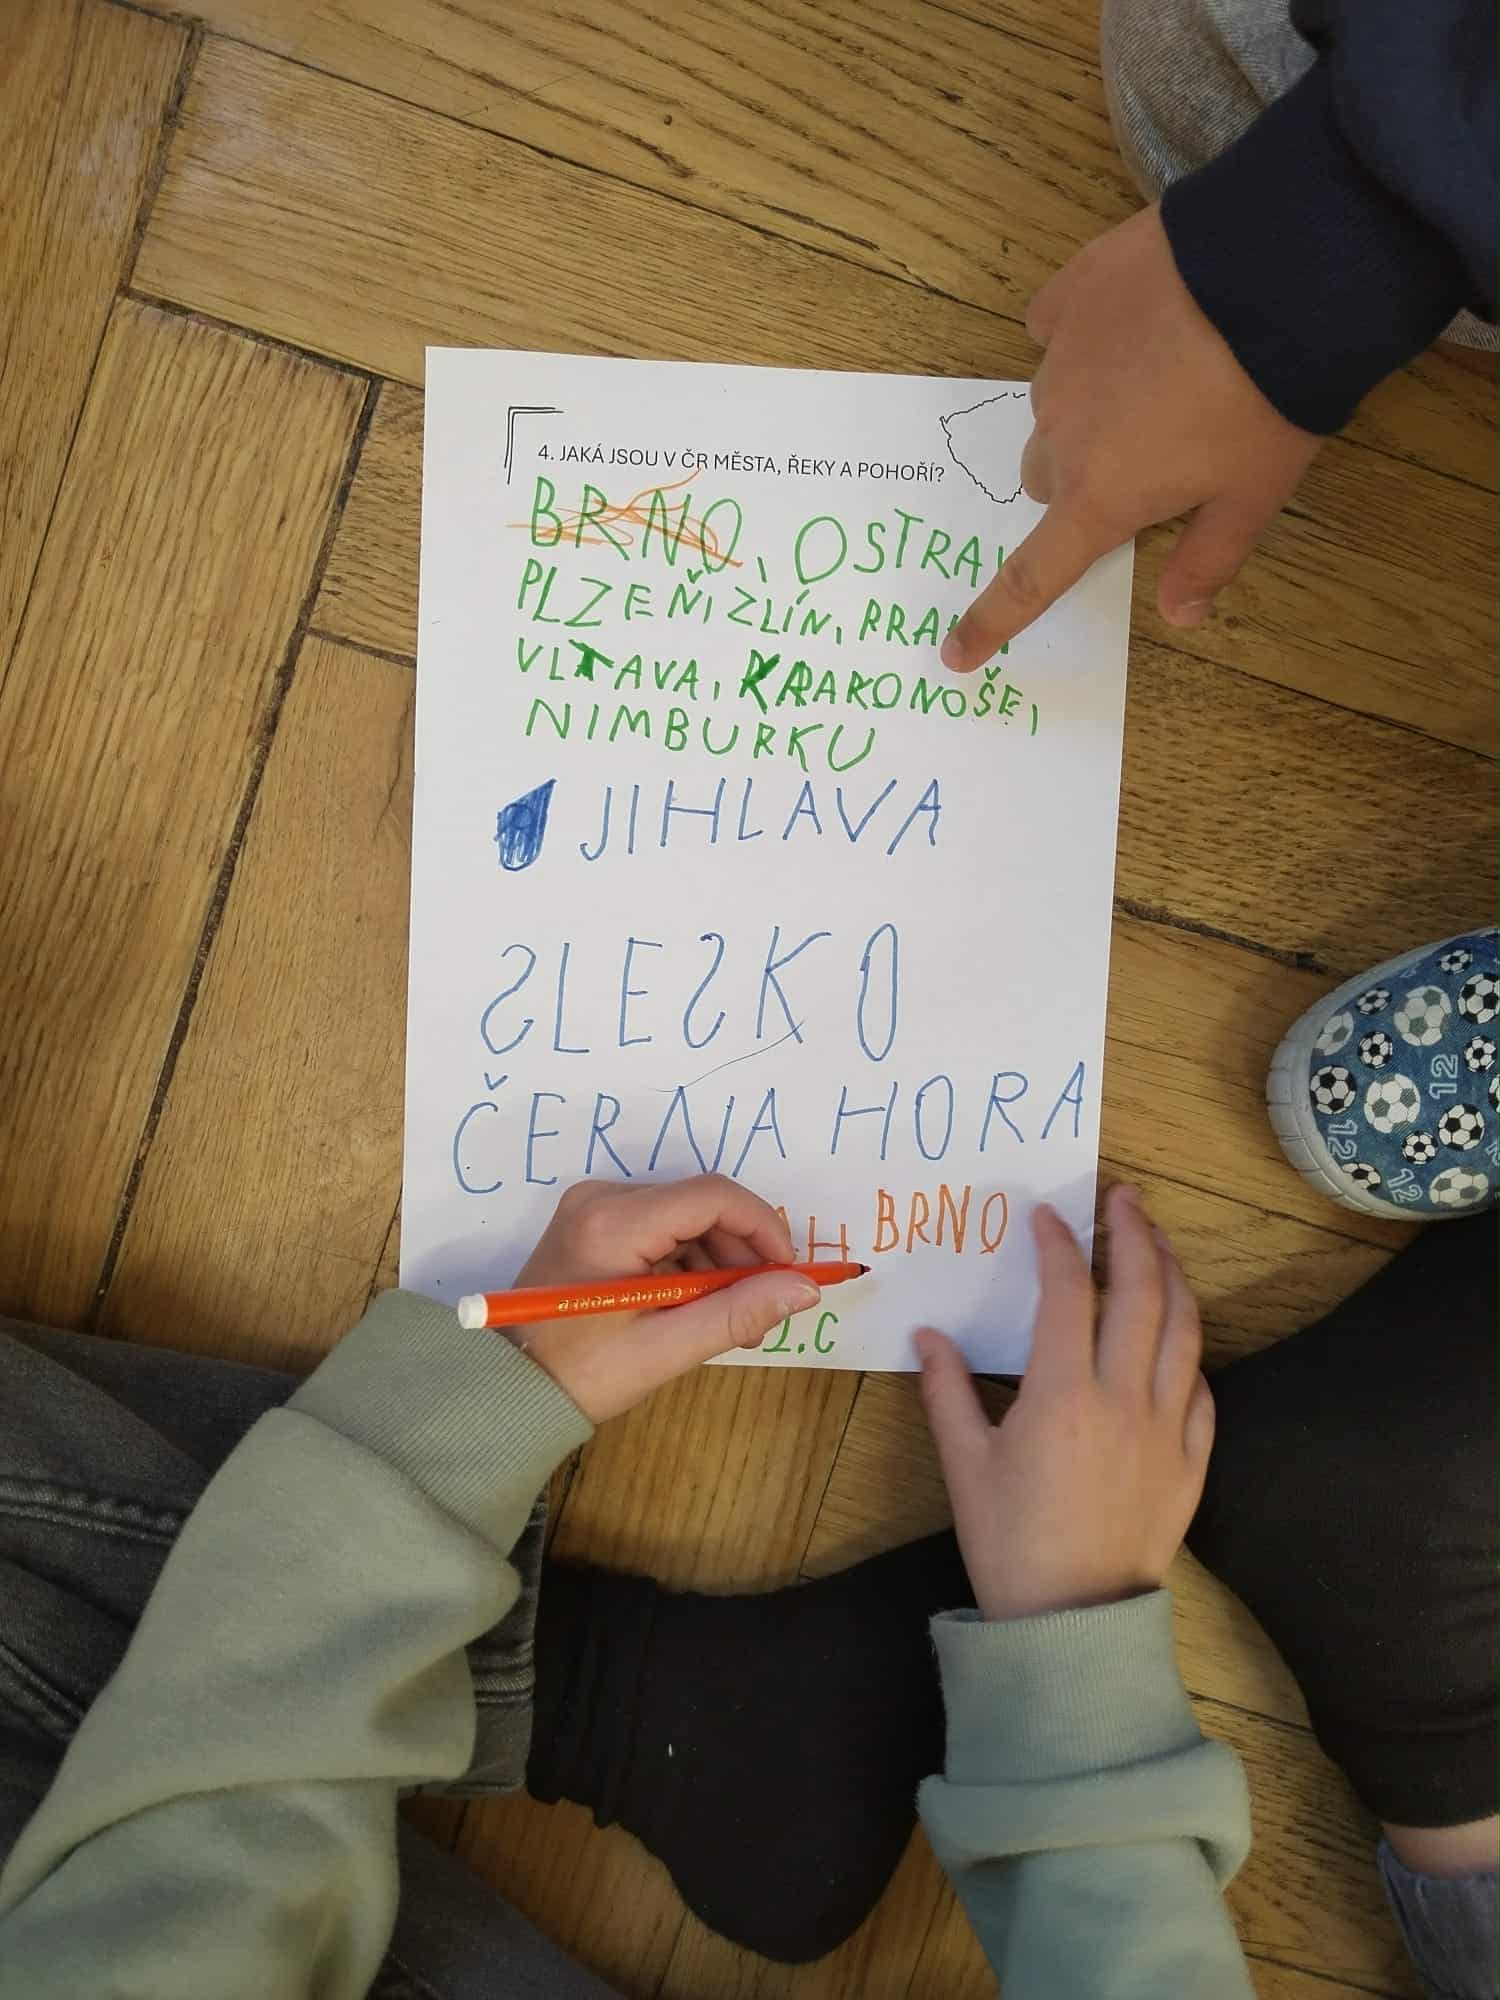 4. JAKÁ JSOU V ČR MĚSTA, ŘEKY A POHOŘÍ?
BRNO, OSTRAV
PLZEŇ, ZLÍN, PRAH
VLTAVA, KRAKONOŠE,
NIMBURKU
JIHLAVA
SLESKO
ČERNA HORA
AH BRNO
2.C
COLOUR WORLD
12
12
12